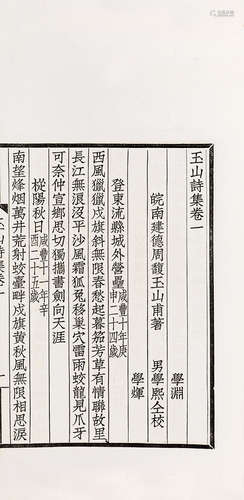 玉山詩集卷一
皖南建德周馥玉山甫著
學淵
男學熙仝校
學煇
登東流縣城外營壘咸豐十年庚申二十四歲
西風獵獵戍旗斜無限春愁起暮笳芳草有情聯故里
長江無浪沒平沙風霜狐兔移巢穴雷雨蛟龍見爪牙
可奈仲宣鄉思切獨攜書劍向天涯
樅陽秋日咸豐十一年辛酉二十五歲
南望烽烟萬井荒射蛟臺畔戍旗黃秋風無限相思淚
玉山詩集卷一
一